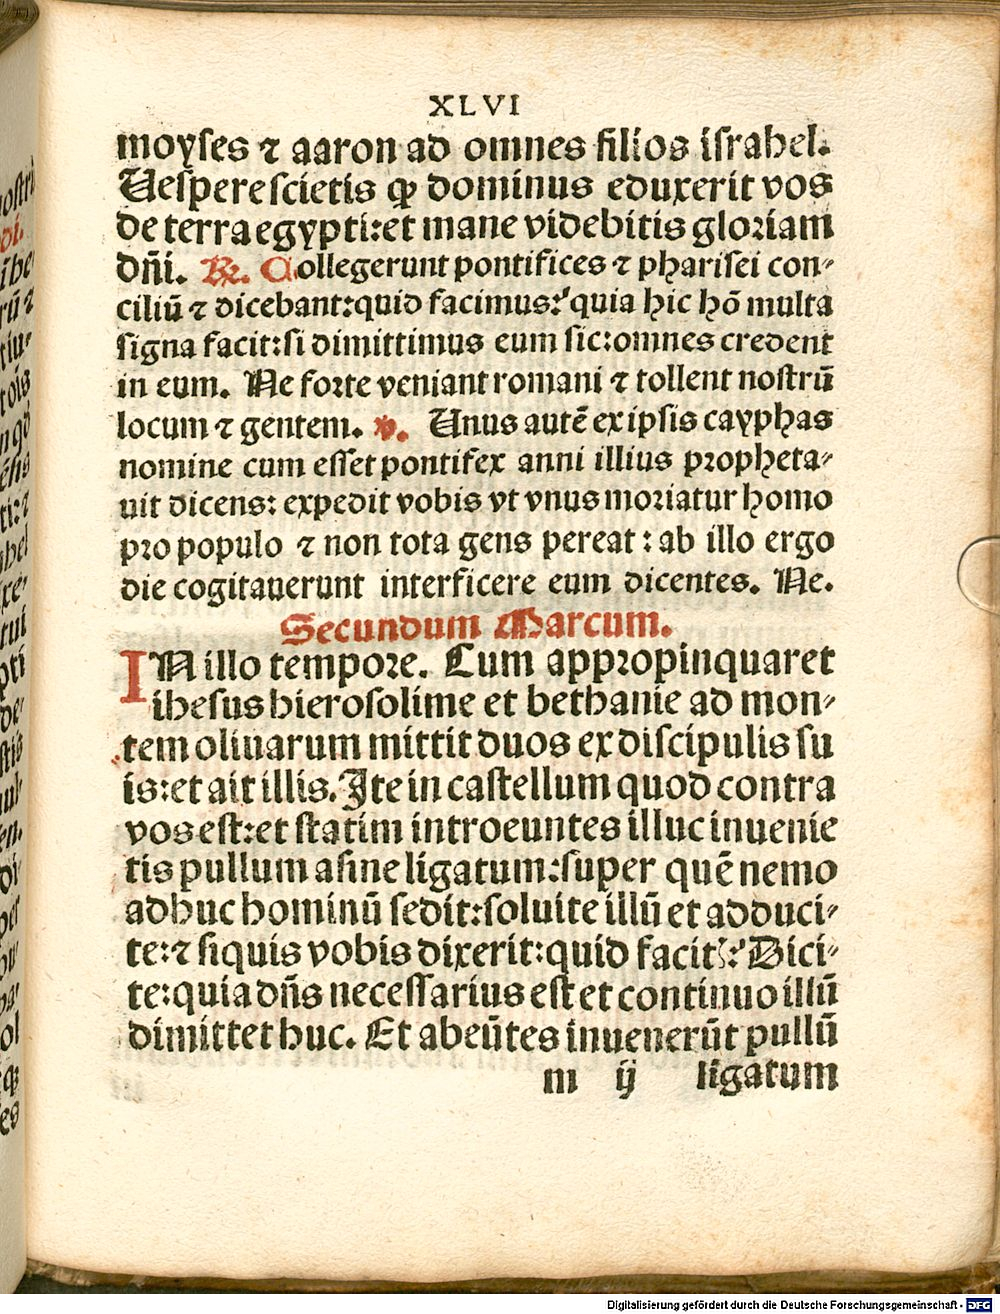 XLVI
moyses ⁊ aaron ad omnes filios israhel.
Uespere scietis ꝙ dominus eduxerit vos
de terra egypti: et mane videbitis gloriam
dñi. ℟. Collegerunt pontifices ⁊ pharisei con-
ciliū ⁊ dicebant: quid facimus: quia hic hō multa
signa facit: si dimittimus eum sic: omnes credent
in eum. Ne forte veniant romani ⁊ tollent nostrū
locum ⁊ gentem. ℣. Unus autē ex ipsis cayphas
nomine cum esset pontifex anni illius propheta-
uit dicens: expedit vobis vt vnus moriatur homo
pro populo ⁊ non tota gens pereat: ab illo ergo
die cogitauerunt interficere eum dicentes. Ne.
Secundum Marcum.
IN illo tempore. Cum appropinquaret
ihesus hierosolime et bethanie ad mon-
tem oliuarum mittit duos ex discipulis su
is: et ait illis. Ite in castellum quod contra
vos est: et statim introeuntes illuc inuenie
tis pullum asine ligatum: super quē nemo
adhuc hominū sedit: soluite illū et adduci-
te: ⁊ siquis vobis dixerit: quid facit: Dici-
te: quia dñs necessarius est et continuo illū
dimittet huc. Et abeūtes inuenerūt pullū
m ij ligatum
Digitalisierung gefördert durch die Deutsche Forschungsgemeinschaft - DFG